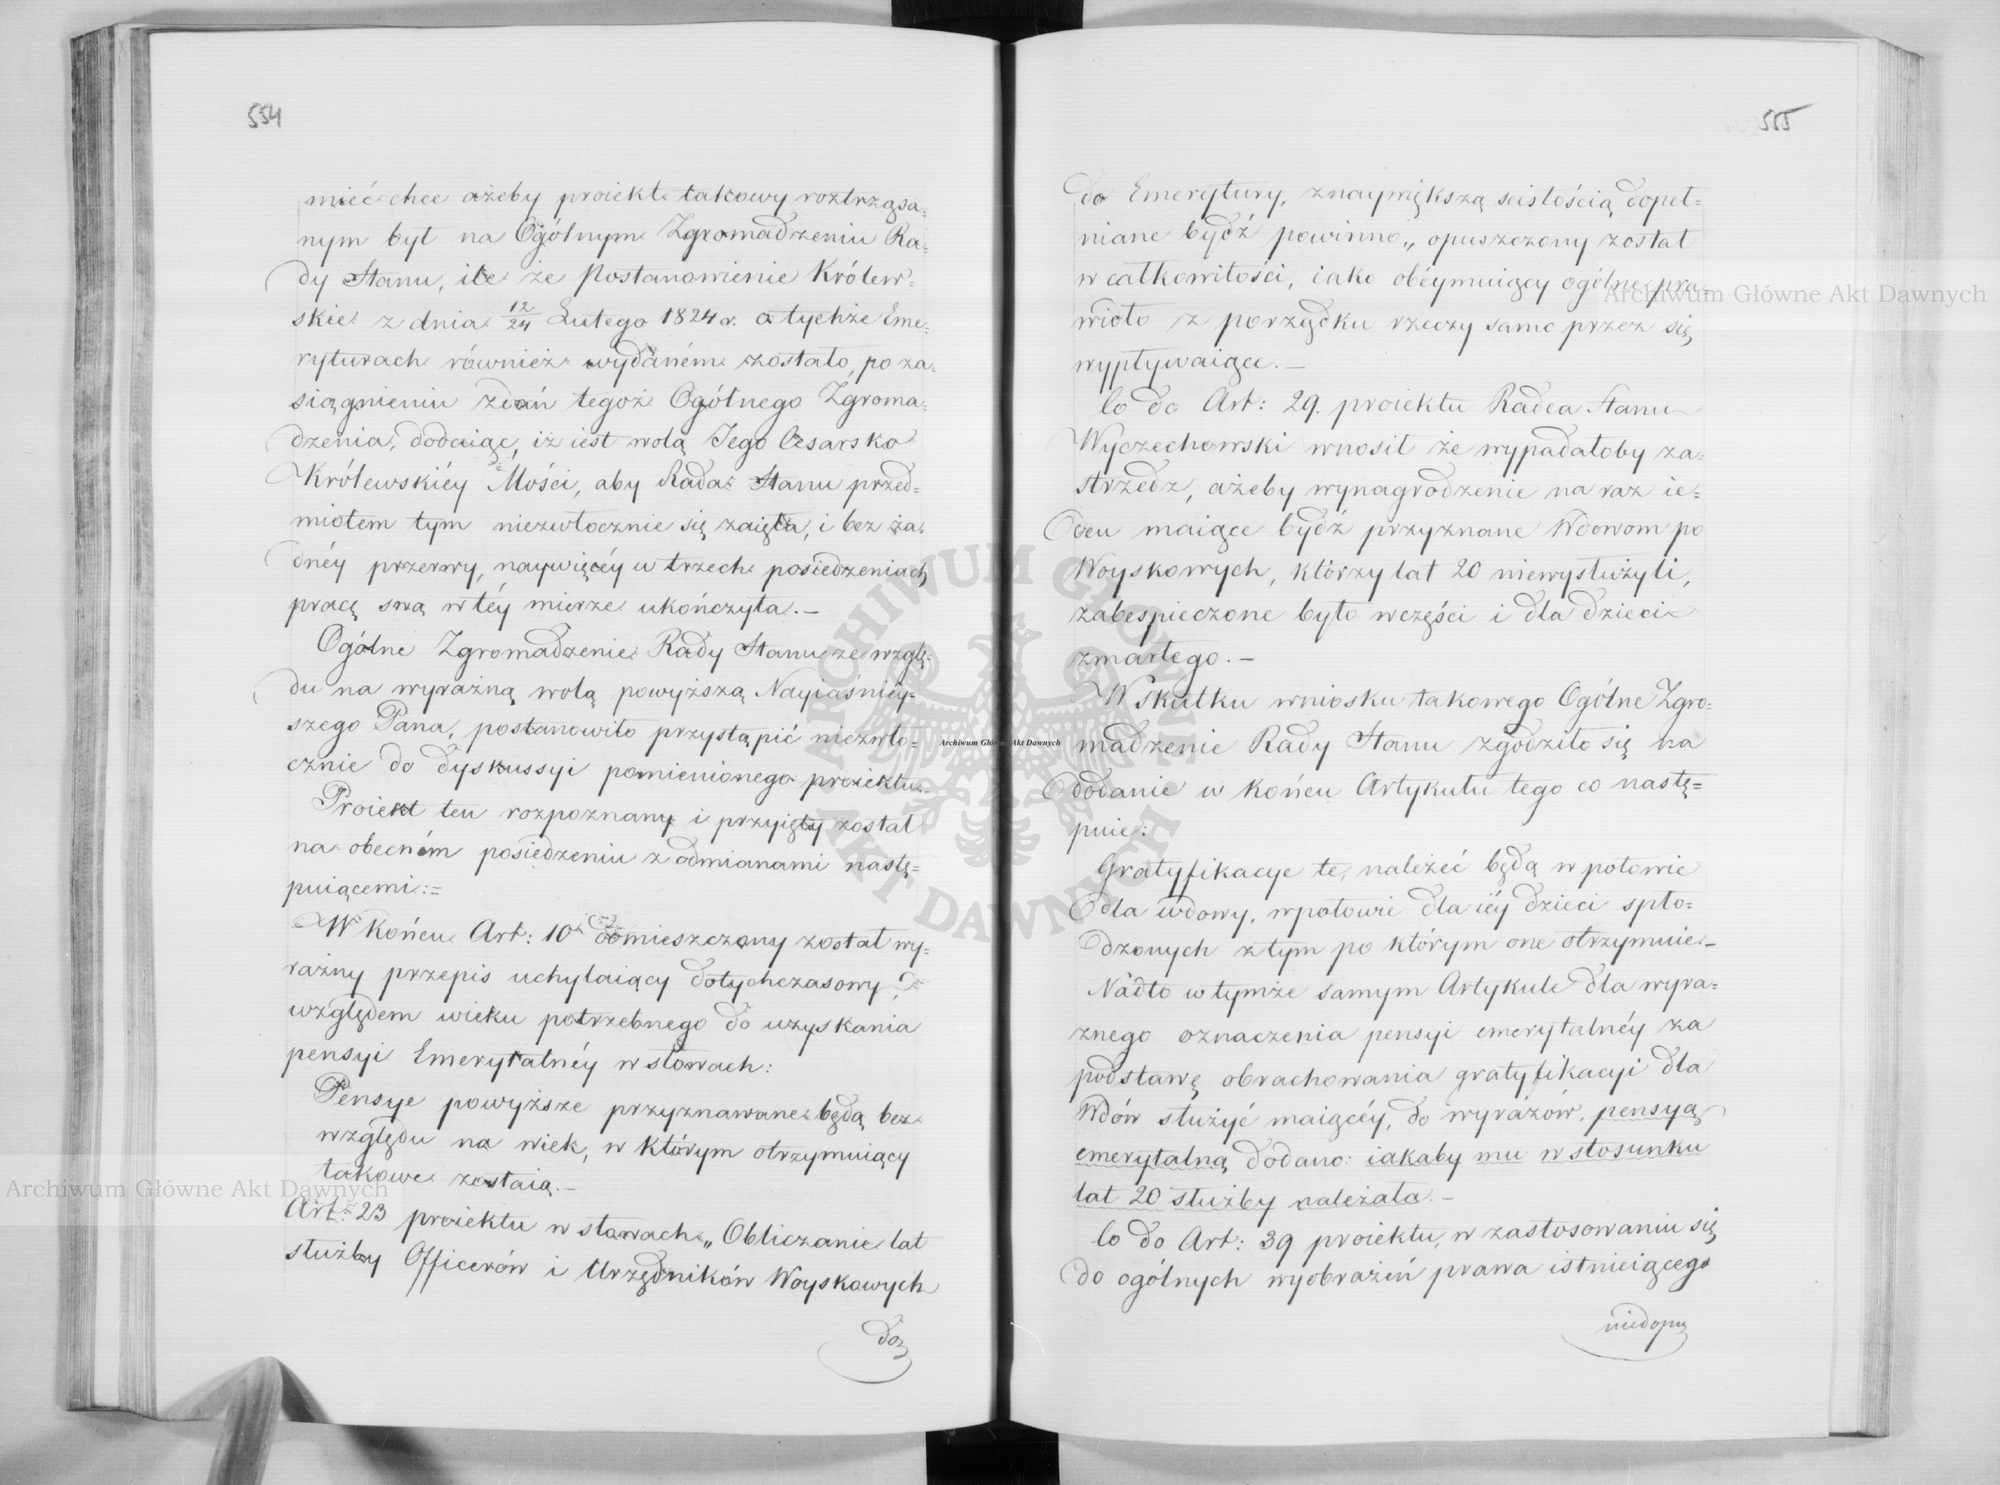 554
mieć chce ażeby proiekt takowy roztrząsa=
nym był na Ogólnym Zgromadzeniu Ra=
dy Stanu, ile że Postanowienie Królew=
skie z dnia 12/24 Lutego 1824 r. o tychże Eme=
ryturach również wydaném zostało, po za=
siągnieniu zdań tegoż Ogólnego Zgroma=
dzenia, dodaiąc, iż iest wolą Jego Cesarsko
Królewskiéy Mości, aby Rada Stanu przed=
miotem tym niezwłocznie się zaięła, i bez ża=
dnéy przerwy, naywięcéy w trzech posiedzeniach
pracę swą w téy mierze ukończyła.—
Ogólne Zgromadzenie Rady Stanu ze wzglę=
du na wyraźną wolą powyższą Nayiaśniéy=
szego Pana, postanowiło przystąpić niezwło=
cznie do dyskussyi pomienionego proiektu.
Proiekt ten rozpoznany i przyięty został
na obecném posiedzeniu z odmianami nastę=
puiącemi:=
W końcu Art: 10 domieszczony został wy=
raźny przepis uchylaiący dotychczasowy
względem wieku potrzebnego do uzyskania
pensyi Emerytalnéy w słowach:
Pensye powyższe przyznawane będą bez
względu na wiek, w którym otrzymuiący
takowe zostaią.—
Art: 23 proiektu w słowach „Obliczanie lat
służby Officerów i Urzędników Woyskowych
do
555
do Emerytury, znaywiększą scisłością dopeł=
niane bydź powinno„ opuszczony został
w całkowitości, iako obéymuiący ogólne pra=
widło z porządku rzeczy samo przez się
wypływaiące.—
Co do Art: 29. proiektu Radca Stanu
Wyczechowski wnosił że wypadałoby za=
strzedz, ażeby wynagrodzenie na raz ie=
den maiące bydź przyznane Wdowom po
Woyskowych, którzy lat 20 niewysłużyli,
zabespieczone było wczęści i dla dzieci
zmarłego.—
W skutku wniosku takowego Ogólne Zgro=
madzenie Rady Stanu zgodziło się na
dodanie w końcu Artykułu tego co nastę=
puie:
Gratyfikacye te, należeć będą w połowie
dla wdowy, wpołowie dla iéy dzieci spło=
dzonych z tym po którym one otrzymuie.—
Nadto w tymże samym Artykule dla wyra=
znego oznaczenia pensyi emerytalnéy za
podstawę obrachowania gratyfikacyi dla
Wdów służyć maiącéy, do wyrazów, pensyą
emerytalną dodano: iakaby mu w stosunku
lat 20 służby należała.—
Co do Art: 39 proiektu, w zastosowaniu się
do ogólnych wyobrażeń prawa istnieiącego
niedopu
Archiwum Główne Akt Dawnych
Archiwum Główne Akt Dawnych
Archiwum Główne Akt Dawnych
ARCHIWUM GŁÓWNE AKT DAWNYCH